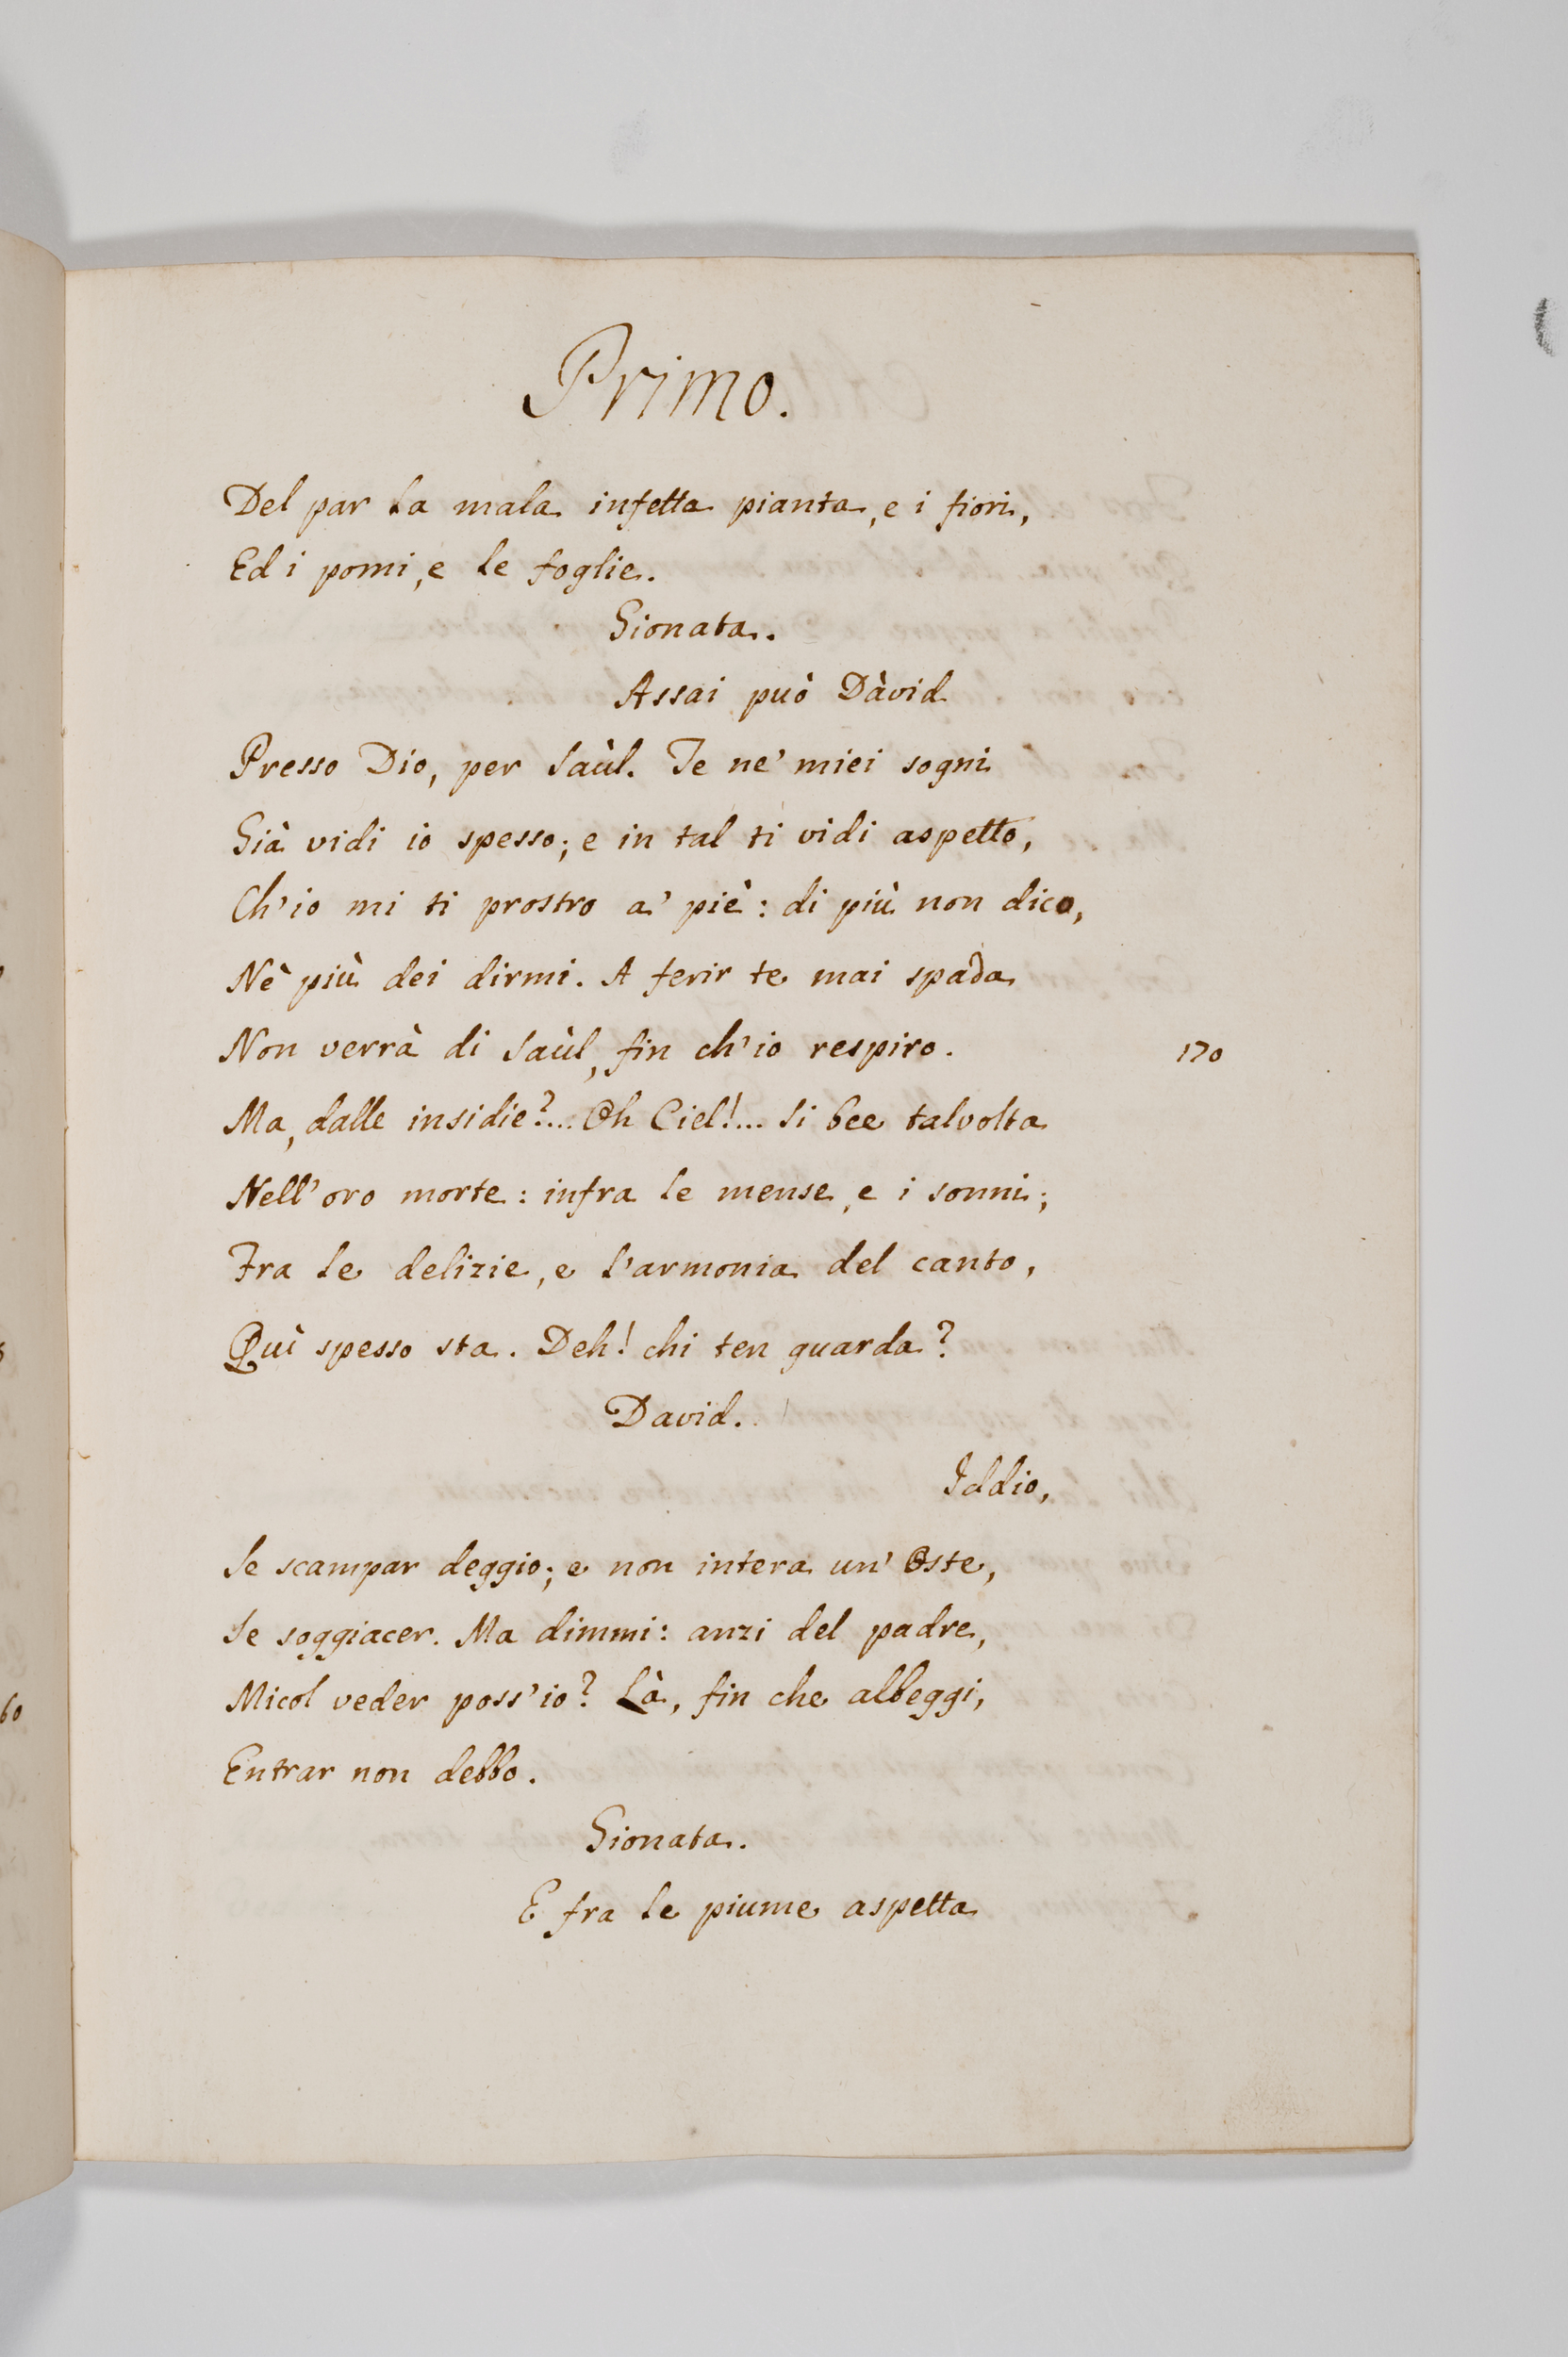 Primo.
Del par la mala infetta pianta, e i fiori,
Ed i pomi, e le foglie.
Gionata.
Assai può Dàvid
Presso Dio, per Saùl. Te ne' miei sogni
Già vidi io spesso; e in tal ti vidi aspetto,
Ch'io mi ti prostro a' piè: di più non dico,
Nè più dei dirmi. A ferir te mai spada
Non verrà di Saùl, fin ch'io respiro. 170
Ma, dalle insidie?... Oh Ciel!... Si bee talvolta
Nell'oro morte: infra le mense, e i sonni;
Fra le delizie, e l'armonia del canto,
Quì spesso sta. Deh! chi ten guarda?
David.
Iddio,
Se scampar deggio; e non intera un' Oste,
Se soggiacer. Ma dimmi: anzi del padre,
Micol veder poss'io? Là, fin che albeggi,
Entrar non debbo.
Gionata.
E fra le piume aspetta
60